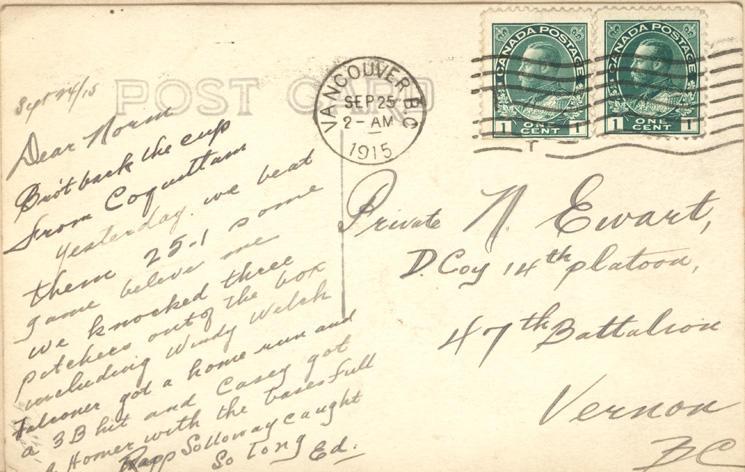 POST CARD
VANCOUVER, B.C.
SEP 25
2 - AM
1915
CANADA POSTAGE
1 ONE CENT 1
CANADA POSTAGE
1 ONE CENT 1
Sept 24/15
Dear Norm
Bro't back the cup
from Coquitlam
yesterday. we beat
them 25-1 some
game beleve me
we knocked three
pitchers out of the box
including Windy Welch
Falconer got a home run and
a 3B hit and Casey got
a Homer with the bases full
Rapp Solloway caught
So Long Ed.
Private N. Ewart,
D. Coy 14th platoon,
47th Battalion
Vernon
BC